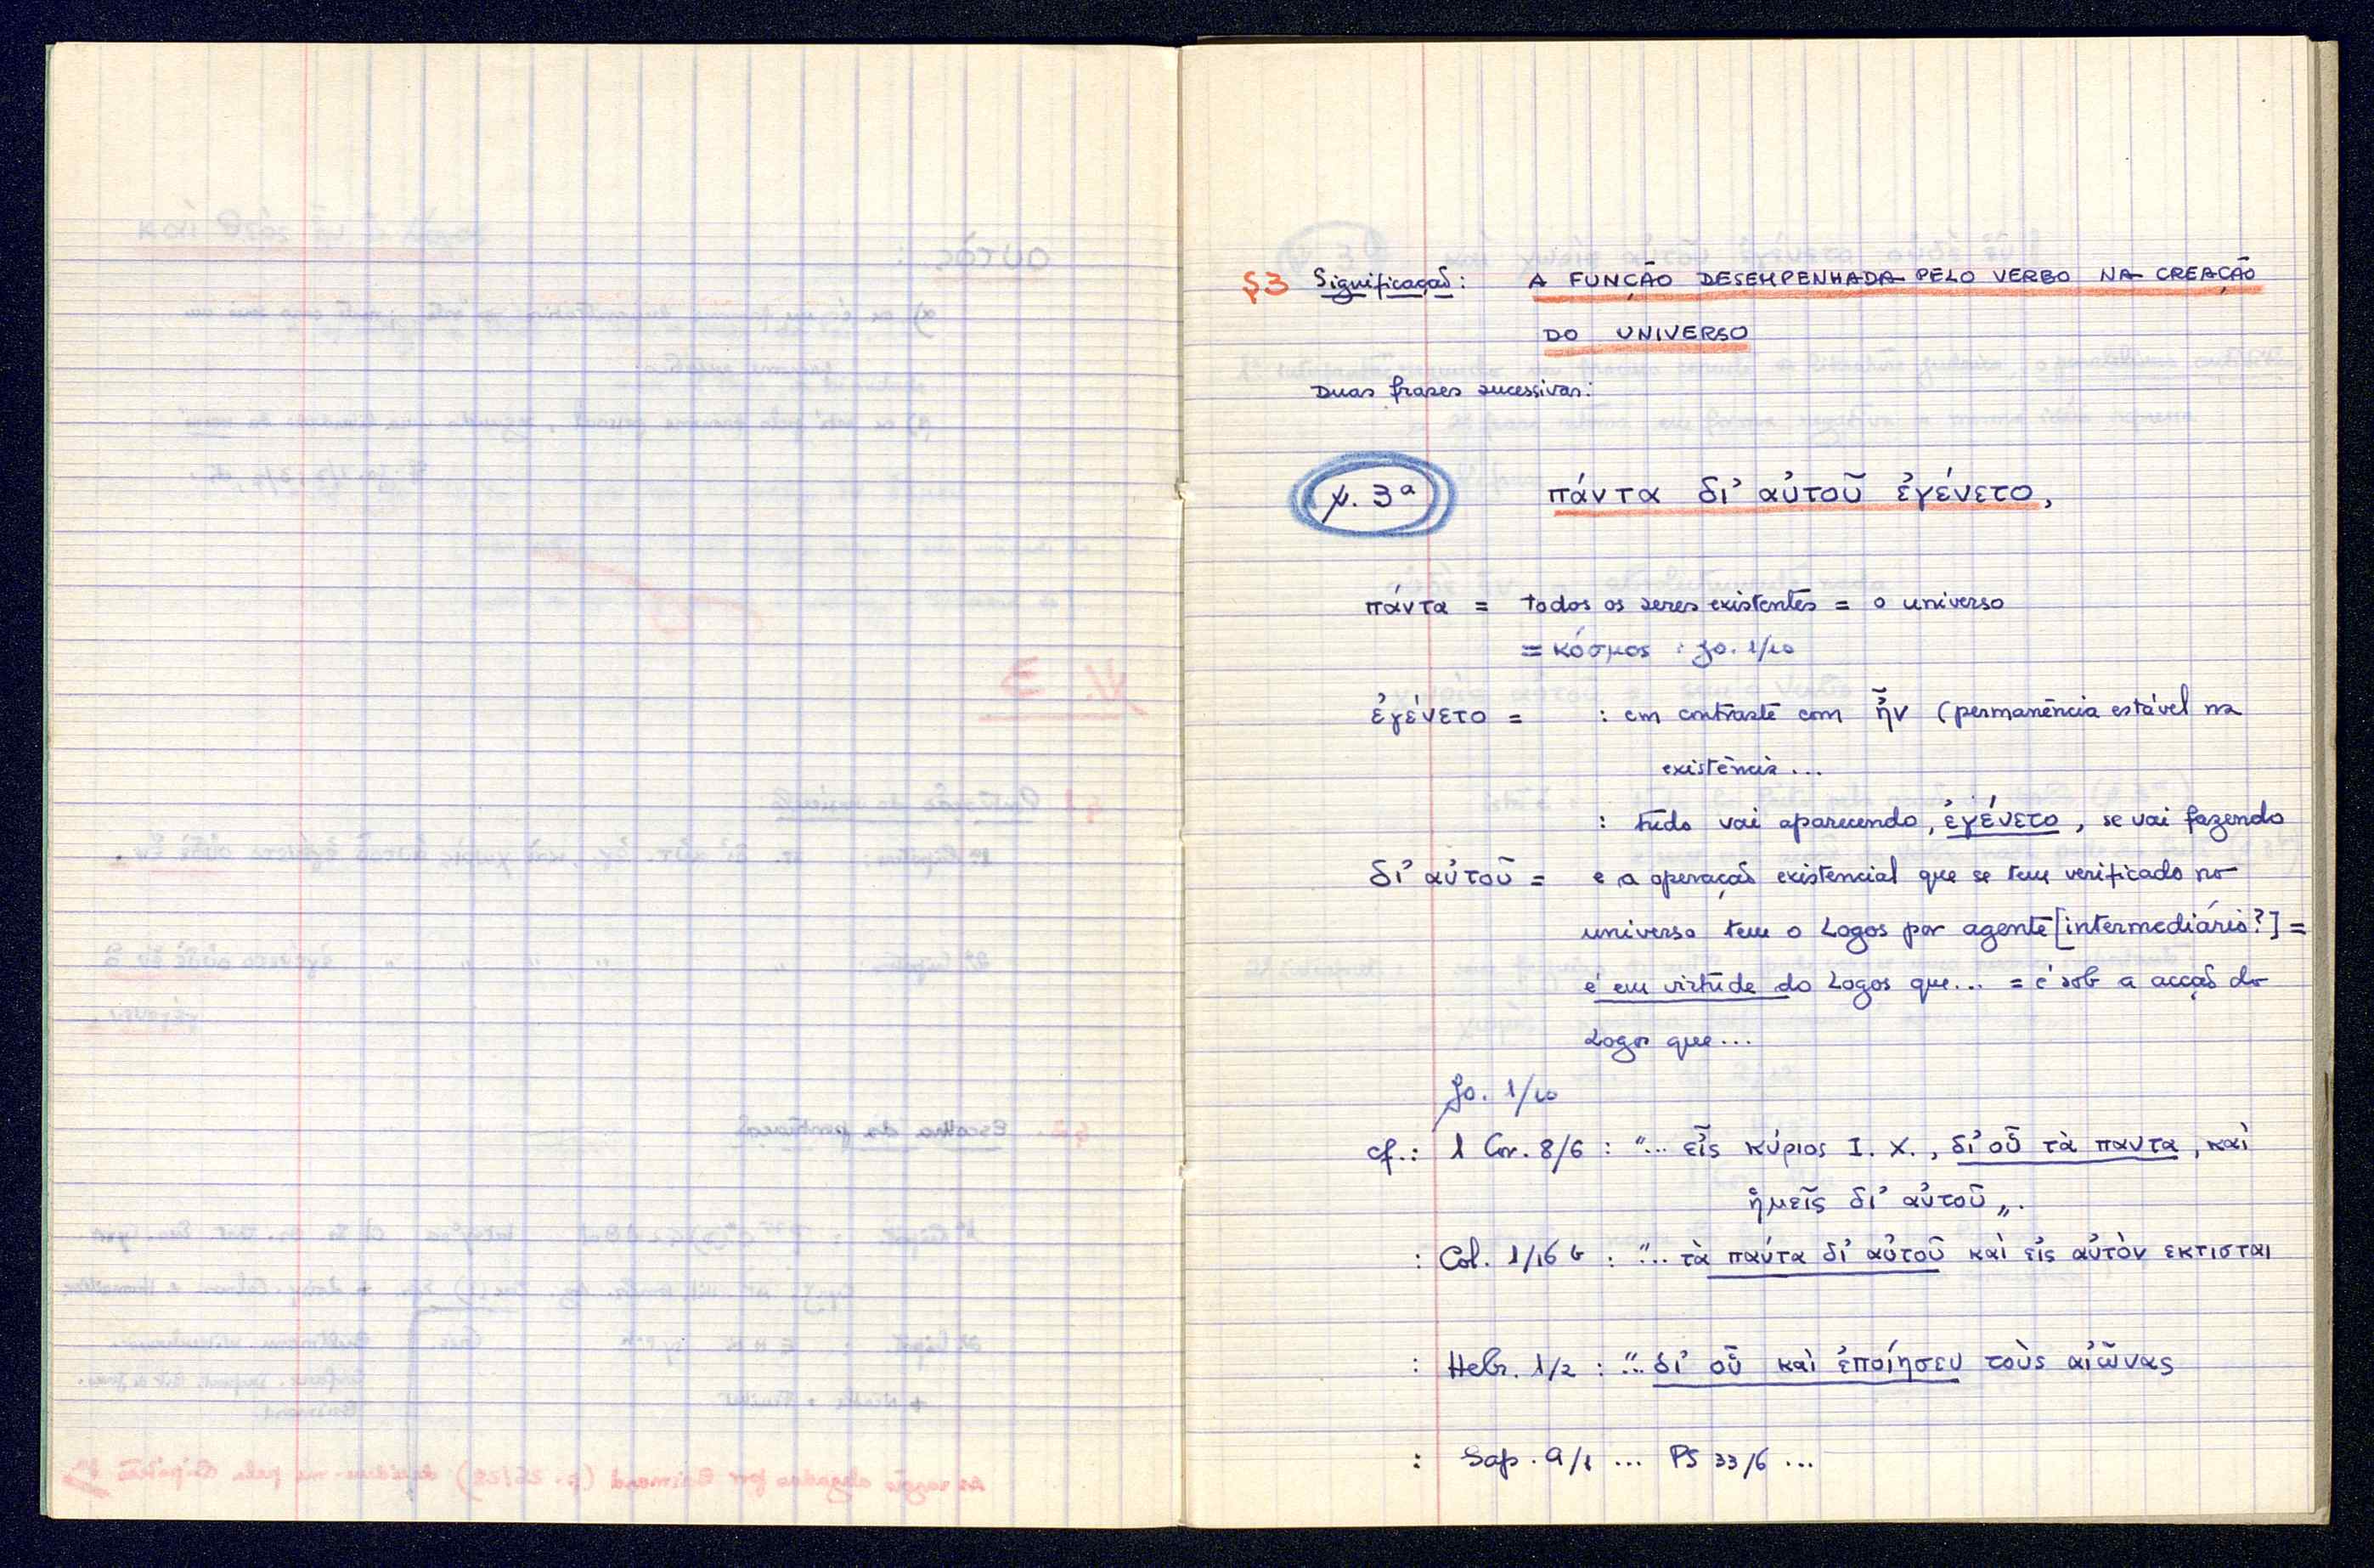 §3 Significação: A FUNÇÃO DESEMPENHADA PELO VERBO NA CREAÇÃO
DO UNIVERSO
Duas frases sucessivas:
℣. 3ª πάντα δι’ αὐτοῦ ἐγένετο,
πάντα = todos os seres existentes = o universo
= κόσμος : Jo. 1/10
ἐγένετο = : em contraste com ἦν (permanência estável na
existência...
: tudo vai aparecendo, ἐγένετο, se vai fazendo
δι’ αὐτοῦ = e a operação existencial que se tem verificado no
universo tem o Logos por agente [intermediário?] =
é em virtude do Logos que... = é sob a acção do
Logos que...
Jo. 1/10
cf.: 1 Cor. 8/6 : "... εἷς κύριος Ι. Χ., δι’ οὗ τὰ παντα, καὶ
ἡμεῖς δι’ αὐτοῦ„.
: Col. 1/16 b : "... τὰ πάντα δι’ αὐτοῦ καὶ εἰς αὐτὸν εκτισται
: Hebr. 1/2 : "... δι’ οὗ καὶ ἐποίησεν τοὺς αἰῶνας
: Sap. 9/1 ... PS 33/6 ...